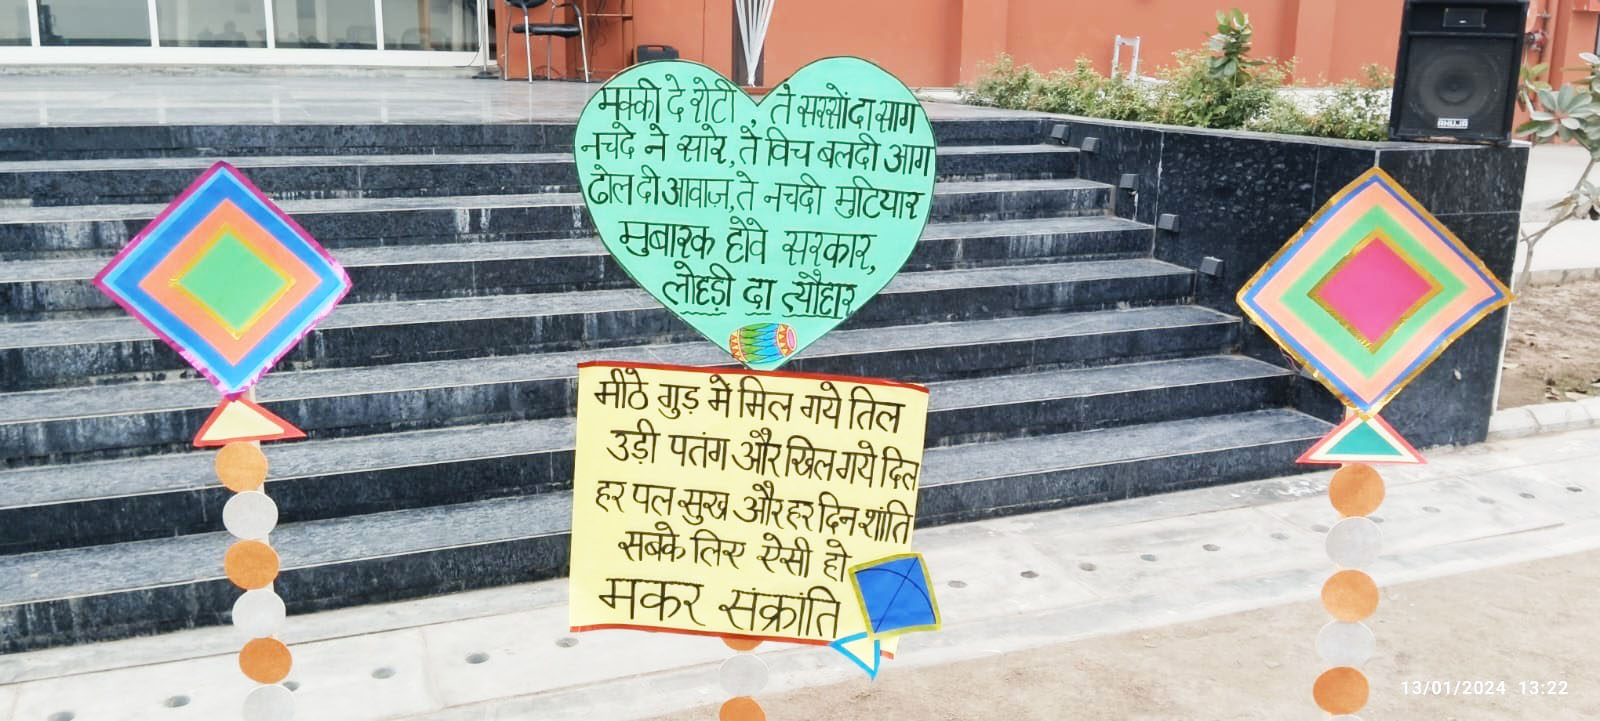 मक्की दे रोटी, ते सरसोंदा साग
नचदे ने सारे, ते विच बलदी आग
ढोल दी आवाज़, ते नचदी मुटियार
मुबारक होवे सरकार,
लोहड़ी दा त्यौहार
मीठे गुड़ में मिल गये तिल
उड़ी पतंग और खिल गये दिल
हर पल सुख और हर दिन शांति
सबके लिए ऐसी हो
मकर संक्रांति
AHUJA
13/01/2024 13:22